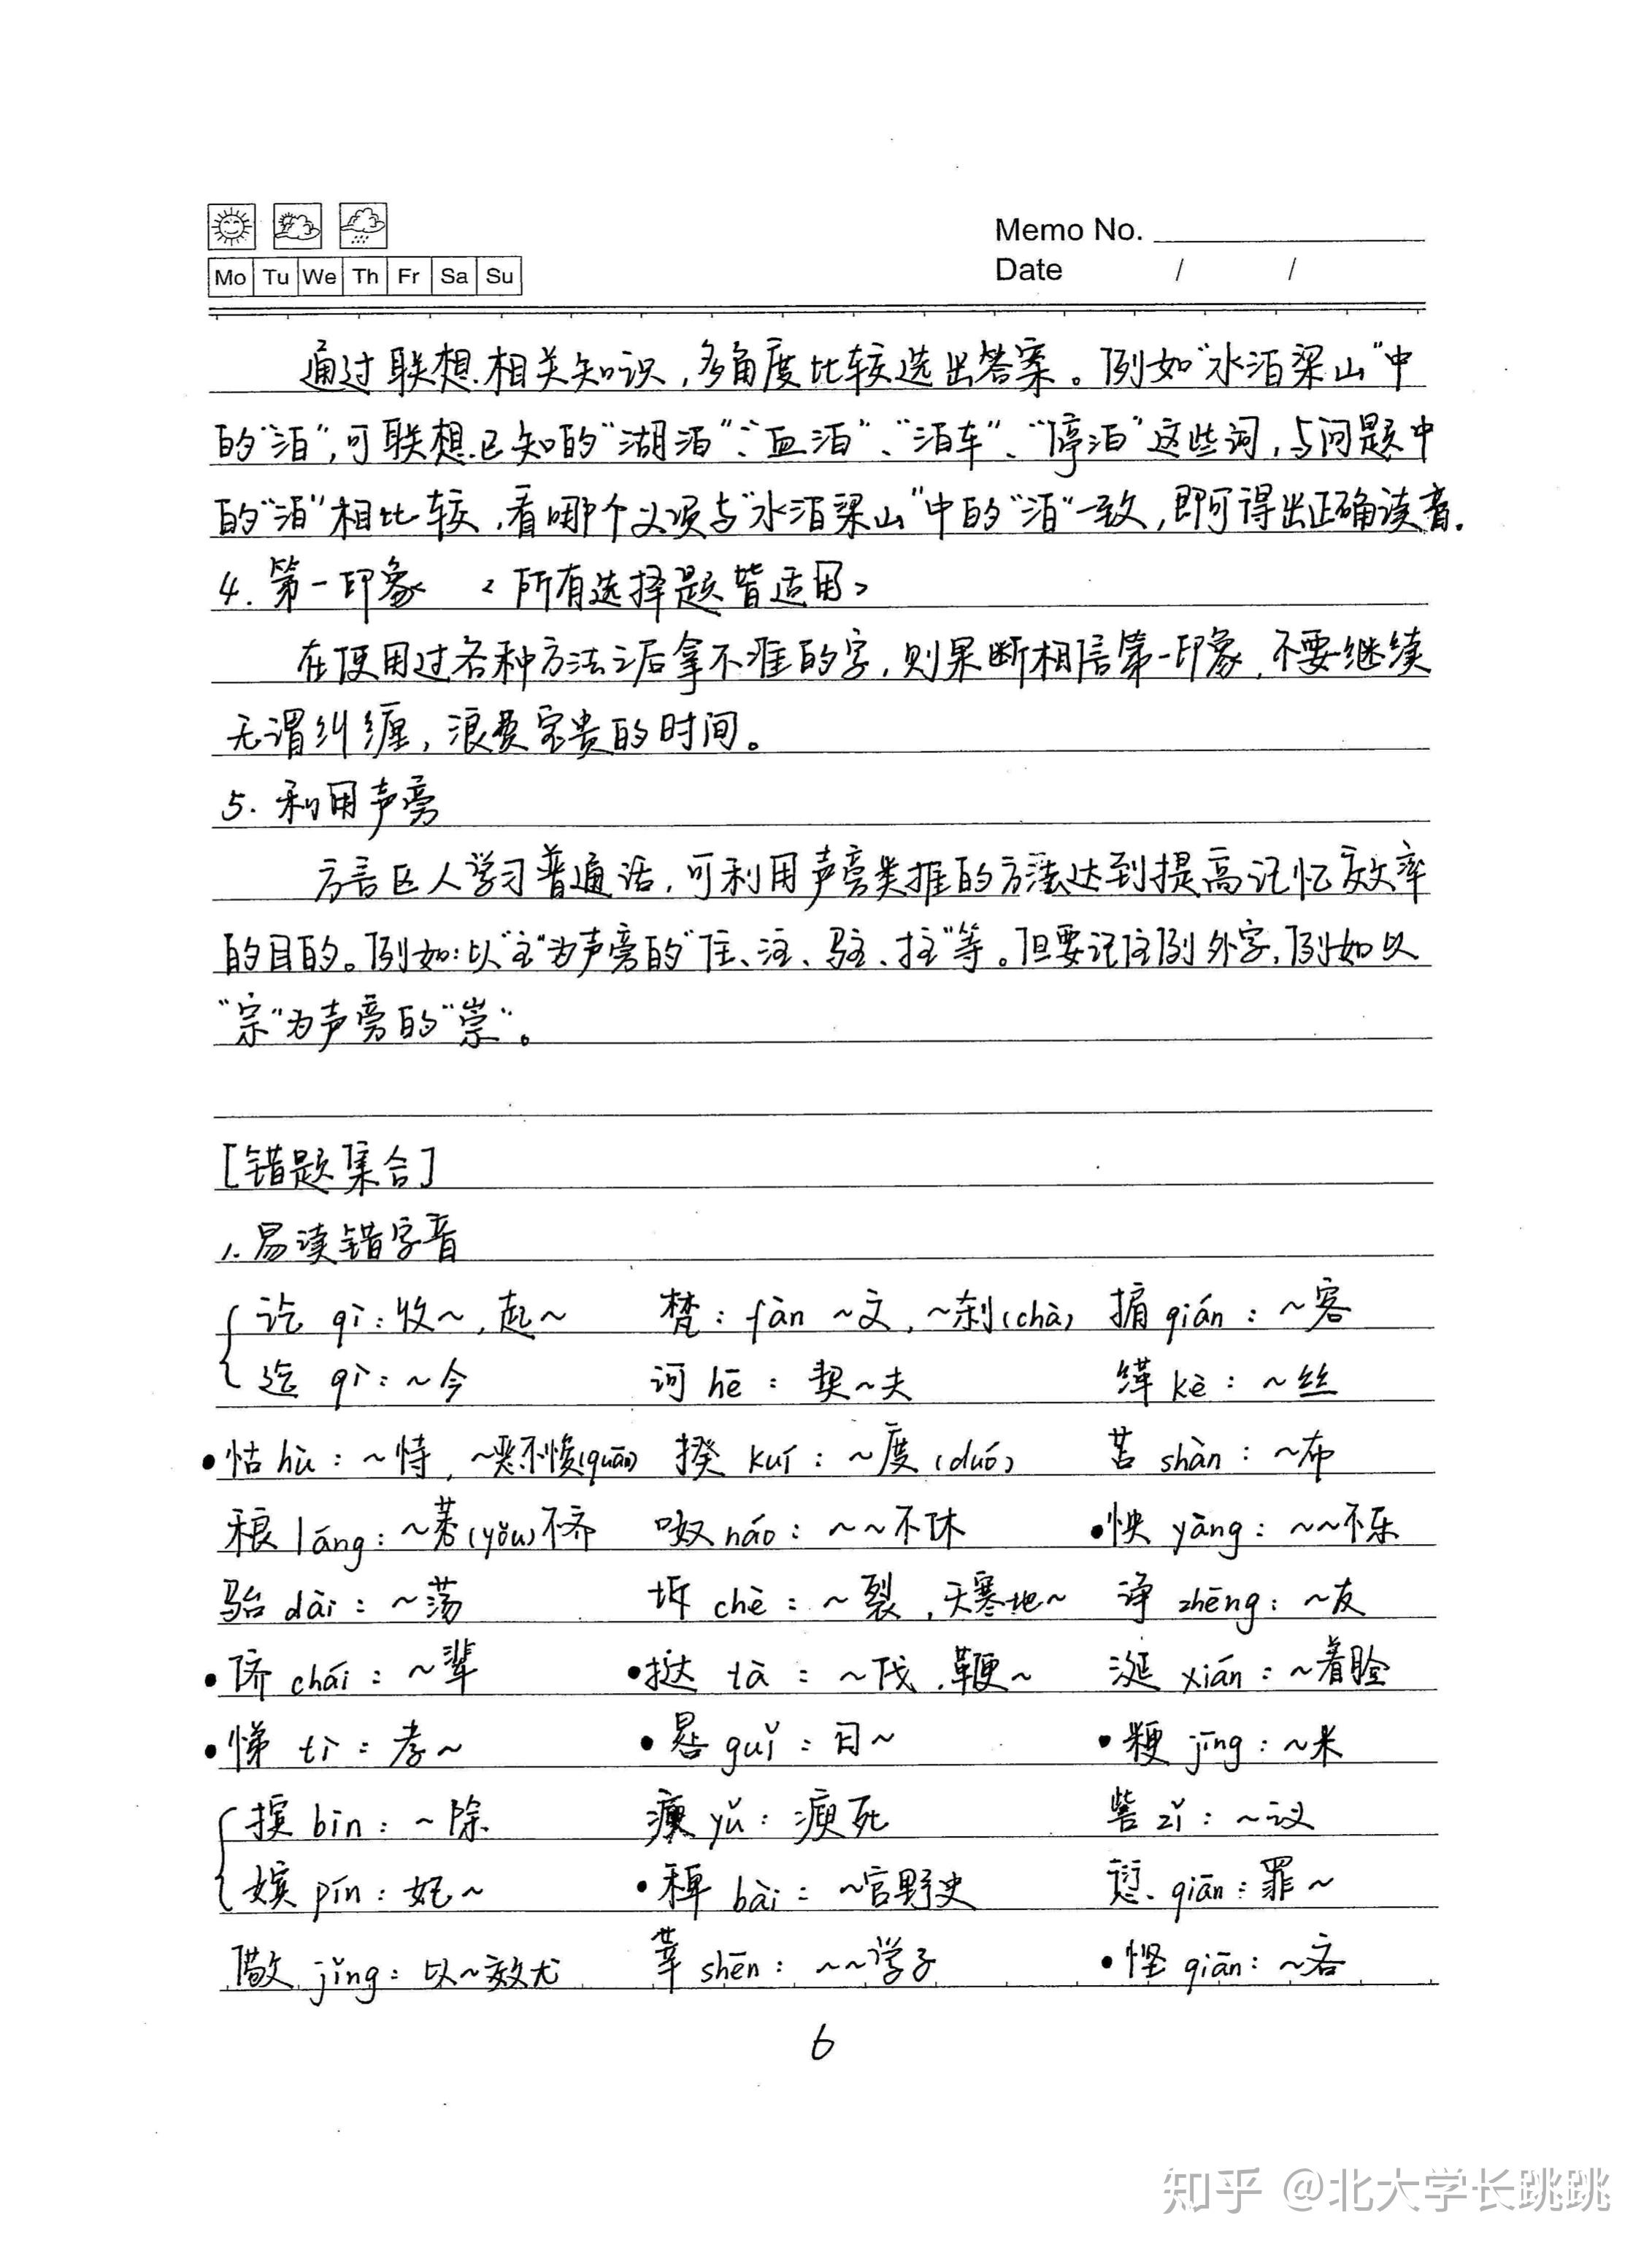 Memo No.
Mo Tu We Th Fr Sa Su
Date / /
通过联想相关知识，多角度比较选出答案。例如“水泊梁山”中
的“泊”，可联想已知的“湖泊”、“血泊”、“泊车”、“停泊”这些词，与问题中
的“泊”相比较，看哪个义项与“水泊梁山”中的“泊”一致，即可得出正确读音.
4. 第一印象 <所有选择题皆适用>
在使用过各种方法之后拿不准的字，则果断相信第一印象，不要继续
无谓纠缠，浪费宝贵的时间。
5. 利用声旁
方言区人学习普通话，可利用声旁类推的方法达到提高记忆效率
的目的。例如：以“主”为声旁的“住、注、驻、拄”等。但要记住例外字，例如以
“宗”为声旁的“崇”。
[错题集合]
1. 易读错字音
讫 qì：收~，起~ 梵：fàn ~文，~刹(chà) 掮 qián：~客
迄 qì：~今 诃 hē：契~夫 缂 kè：~丝
•怙 hù：~恃，~恶不悛(quān) 揆 kuí：~度(duó) 苫 shàn：~布
稂 láng：~莠(yǒu)不齐 呶 náo：~~不休 •怏 yàng：~~不乐
骀 dài：~荡 坼 chè：~裂，天寒地~ 诤 zhēng：~友
•侪 chái：~辈 •挞 tà：~伐，鞭~ 涎 xián：~着脸
•悌 tì：孝~ •晷 guǐ：日~ •粳 jīng：~米
摈 bìn：~除 瘐 yǔ：瘐死 訾 zǐ：~议
嫔 pín：妃~ •稗 bài：~官野史 愆 qiān：罪~
儆 jǐng：以~效尤 莘 shēn：~~学子 •悭 qiān：~吝
6
知乎 @北大学长跳跳